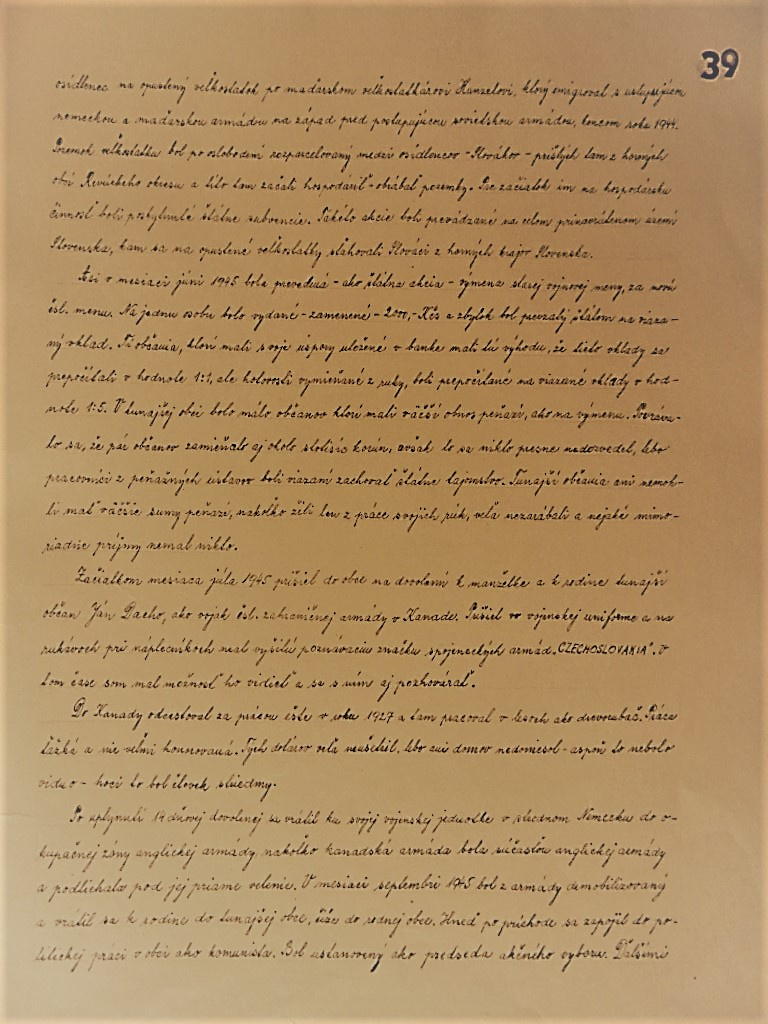 39
osídlenec na opustený veľkostatok po maďarskom veľkostatkárovi Hanzelovi, ktorý emigroval s ustupujúcou
nemeckou a maďarskou armádou na západ pred postupujúcou sovietskou armádou, koncom roku 1944.
Pozemok veľkostatku bol po oslobodení rozparcelovaný medzi osídlencov - Slovákov - prišlých tam z horných
obcí Revúckeho okresu a títo tam začali hospodáriť - obrábať pozemky. Pre začiatok im na hospodársku
činnosť boli poskytnuté štátne subvencie. Takéto akcie boli prevádzané na celom prinavrátenom území
Slovenska, kam sa na opustené veľkostatky sťahovali Slováci z horných krajov Slovenska.
Asi v mesiaci júni 1945 bola prevedená - ako štátna akcia - výmena starej vojnovej meny, za novú
čsl. menu. Na jednu osobu bolo vydané - zamenené - 2000,- Kčs a zbytok bol prevzatý štátom na viaza-
ný vklad. Tí občania, ktorí mali svoje úspory uložené v banke mali tú výhodu, že tieto vklady sa
prepočítali v hodnote 1:1, ale hotovosti vymieňané z ruky, boli prepočítané na viazané vklady v hod-
note 1:5. V tunajšej obci bolo málo občanov ktorí mali väčší obnos peňazí, ako na výmenu. Povráva-
lo sa, že pár občanov zamieňalo aj okolo stotisíc korún, avšak to sa nikto presne nedozvedel, lebo
pracovníci z peňažných ústavov boli viazaní zachovať štátne tajomstvo. Tunajší občania ani nemoh-
li mať väčšie sumy peňazí, nakoľko žili len z práce svojich rúk, veľa nezarábali a nejaké mimo-
riadne príjmy nemal nikto.
Začiatkom mesiaca júla 1945 prišiel do obce na dovolenú k manželke a k rodine tunajší
občan Ján Dacho, ako vojak čsl. zahraničnej armády v Kanade. Prišiel vo vojenskej uniforme a na
rukávoch pri náplecníkoch mal vyšitú poznávaciu značku spojeneckých armád "CZECHOSLOVAKIA". V
tom čase som mal možnosť ho vidieť a sa s ním aj pozhovárať.
Do Kanady odcestoval za prácou ešte v roku 1927 a tam pracoval v lesoch ako drevorubač. Práca
ťažká a nie veľmi honorovaná. Tých dolárov veľa neušetril, lebo ani domov nedoniesol - aspoň to nebolo
vidno - hoci to bol človek striedmy.
Po uplynutí 14 dňovej dovolenej sa vrátil ku svojej vojenskej jednotke v Nemecku do o-
kupačnej zóny anglickej armády, nakoľko kanadská armáda bola súčasťou anglickej armády
a podliehala pod jej priame velenie. V mesiaci septembri 1945 bol z armády demobilizovaný
a vrátil sa k rodine do tunajšej obce, čiže do rodnej obce. Hneď po príchode sa zapojil do po-
litickej práci v obci ako komunista. Bol ustanovený ako predseda akčného výboru. Ďalšími